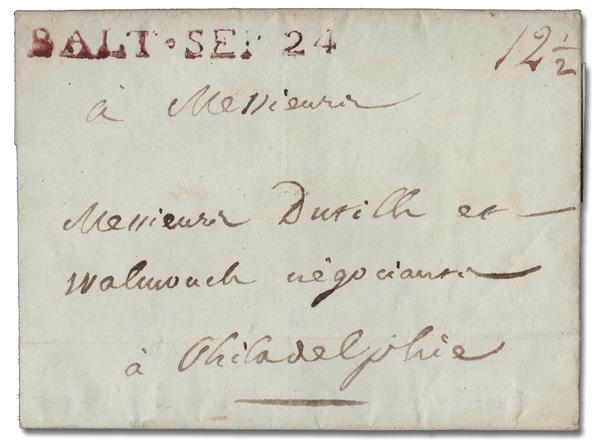 BALT · SEP 24
12½
à Messieurs
Messieurs Dutilh et
Walmouck négociants
à Philadelphie